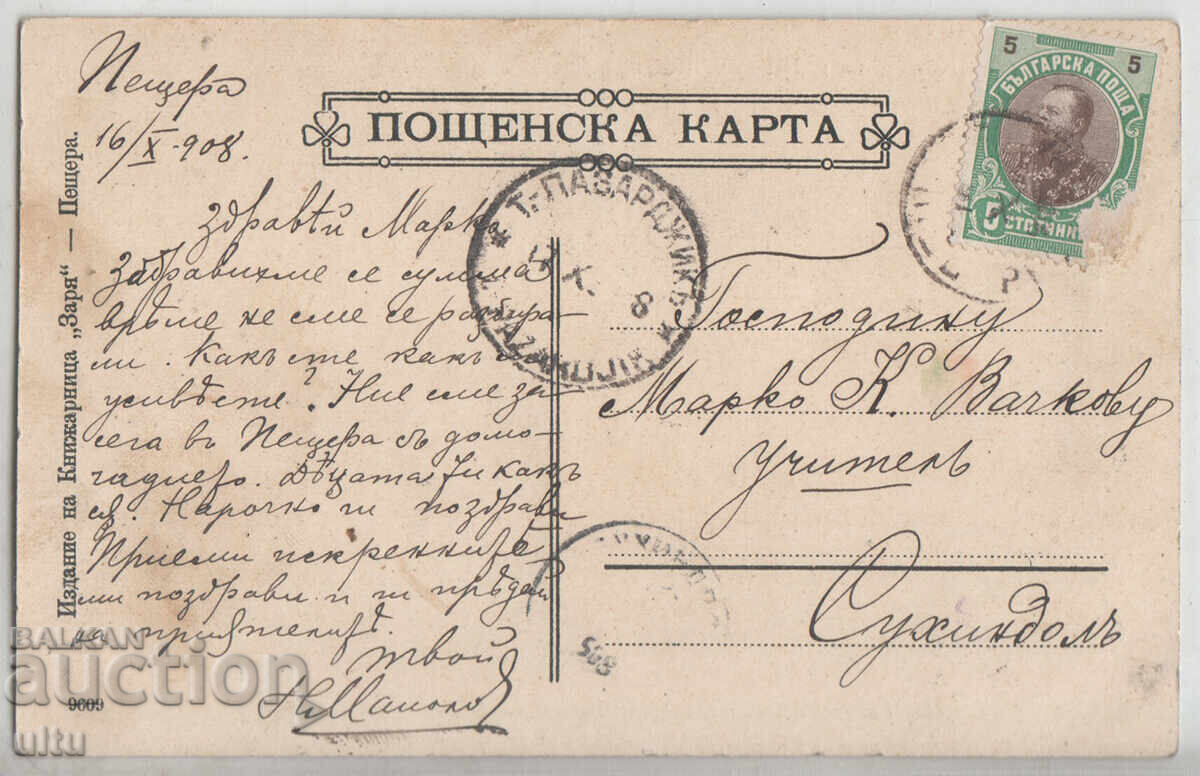 Пещера
16/X-908.
ПОЩЕНСКА КАРТА
5 5
БЪЛГАРСКА ПОЩА
СТОТИНКИ
Т.-ПАЗАРДЖИКЪ
X. 8
Здравѣй Марко
се сумма
врѣме не сме се разгра-
ли. Какъ сте какъ
? Ние сме за
сега въ Пещера съ домо-
чадието. Дѣцата ти какъ
са. Нарочно ги поздрави
Приеми искреннитѣ
ми поздрави и ги прѣдай
на приятелитѣ.
твой
Н.
Господину
Марко К. Вачкову
учитель
Сухиндолъ
Издание на Книжарница „Заря“ — Пещера.
9609
908
BALKAN
auction
ultu